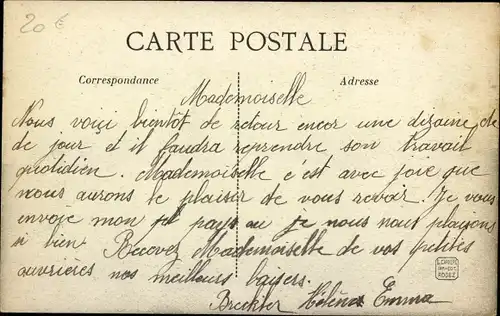 20 €
CARTE POSTALE
Correspondance
Adresse
Mademoiselle
Nous voiçi bientôt de retour encor une dizaine de
de jour et il faudra reprendre son travail
quotidien. Mademoiselle c'est avec joie que
nous aurons le plaisir de vous revoir. Je vous
envoie mon pays au je nous nous plaisons
si bien Recevez Mademoiselle de vos petites
ouvrières nos meilleurs baisers.
Hélène Emma